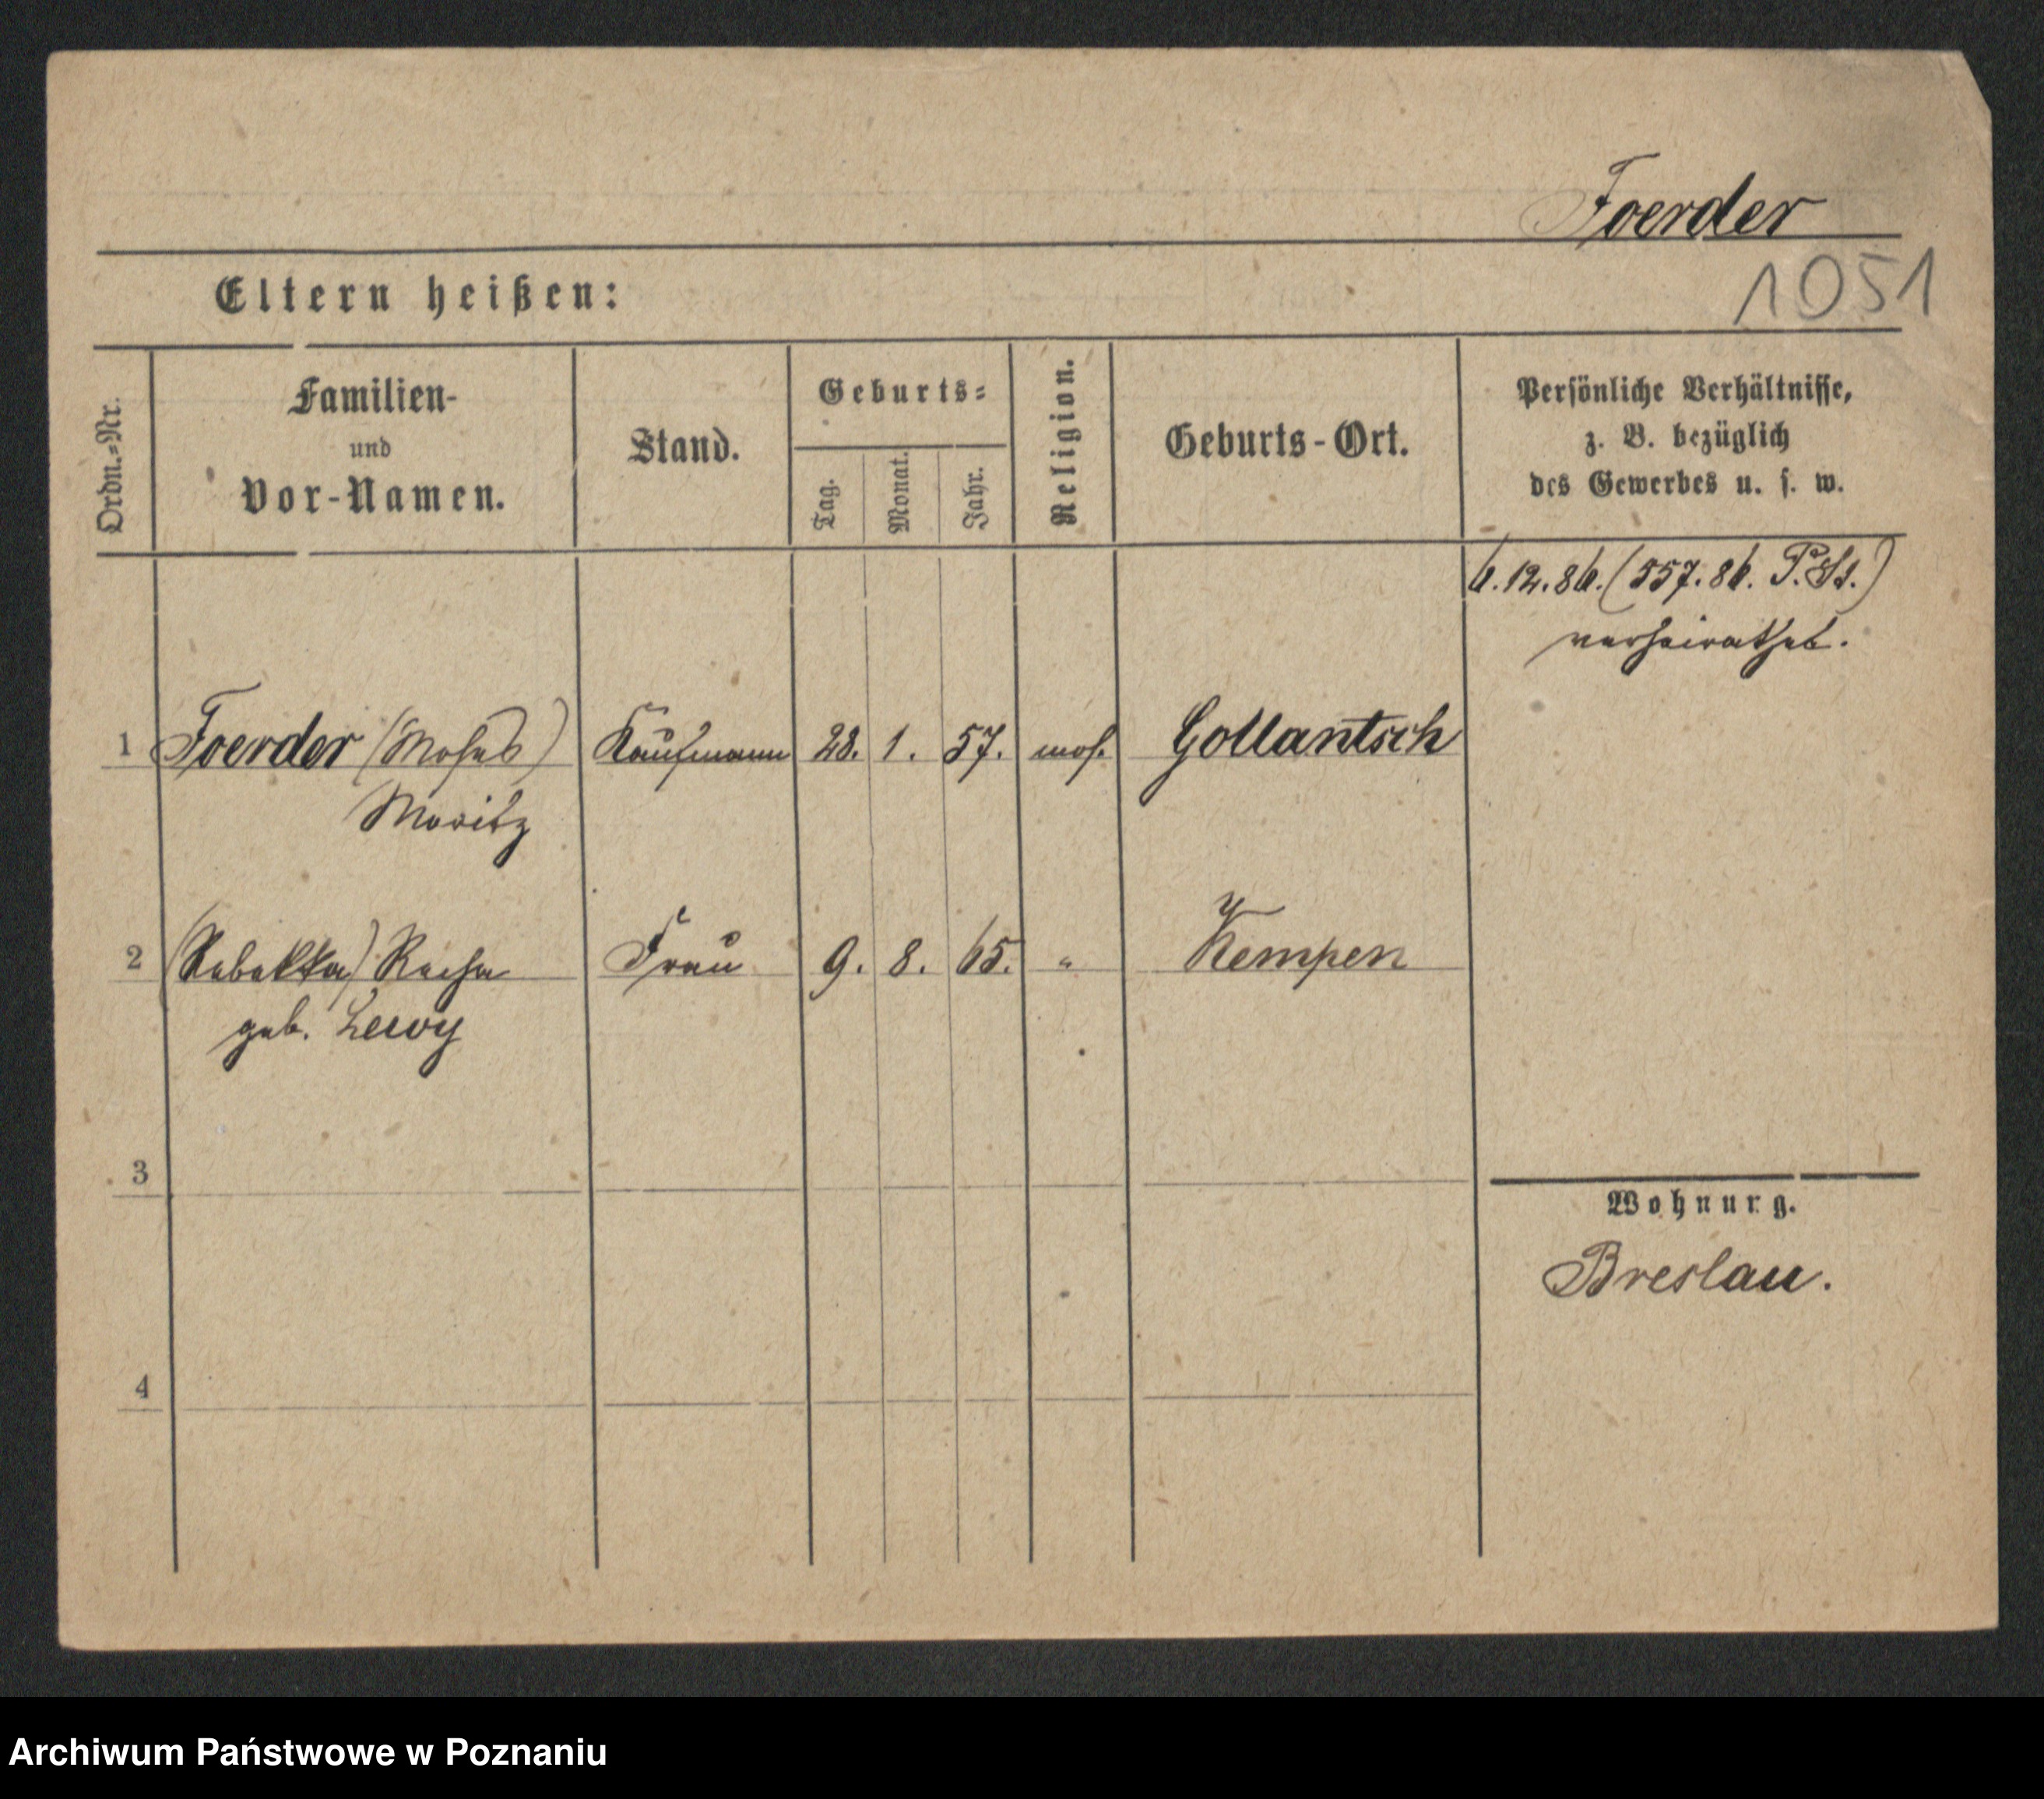 Foerder
1051
Eltern heißen:
Ordn.=Nr.
Familien-
und
Vor-Namen.
Stand.
Geburts=
Tag.
Monat.
Jahr.
Religion.
Geburts-Ort.
Persönliche Verhältnisse,
z. B. bezüglich
des Gewerbes u. s. w.
6.12.86. (557.86. P.St.)
verheirathet.
1 Foerder (Moses) Kaufmann 28. 1. 57. mos. Gollantsch
Moritz
2 (Rebekka) Recha Frau 9. 8. 65. " Kempen
geb. Lewy
3
Wohnung.
Breslau.
4
Archiwum Państwowe w Poznaniu